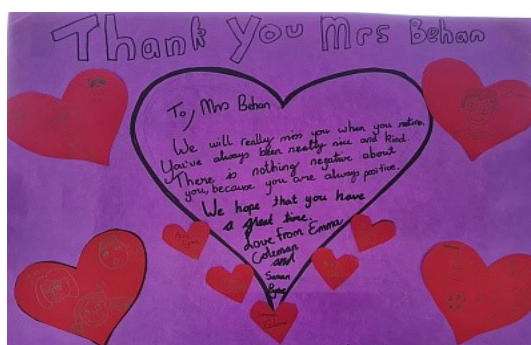 Thank You Mrs Behan
To, Mrs Behan
We will really miss you when you retire.
You've always been really nice and kind.
There is nothing negative about
you, because you are always positive.
We hope that you have
a great time.
Love from Emma
Coleman
and